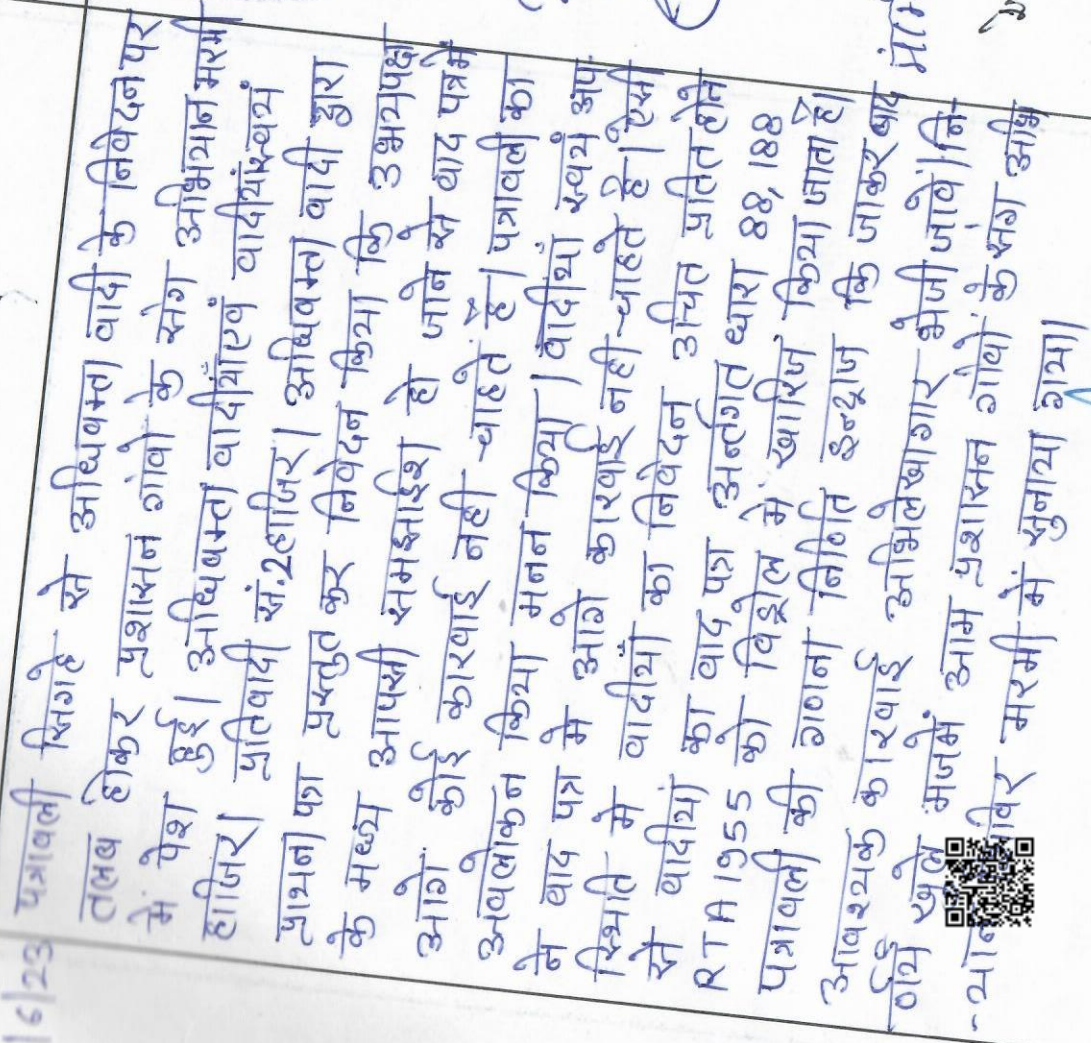 1/6/23 पत्रावली सिगहे से अधिवक्ता वादी के निवेदन पर
तलब होकर प्रशासन गांवो के संग अभियान मरमी
मे पेश हुई। अधिवक्ता वादीयाँ एवं वादीयां स्वयं
हाजिर। प्रतिवादी सं.2 हाजिर। अधिवक्ता वादी द्वारा
प्राथना पत्र प्रस्तुत कर निवेदन किया कि उभयपक्ष
के मध्य आपसी समझाईश हो जाने से वाद पत्र मे
आगे कोई कारवाई नही चाहते है। पत्रावली का
अवलोकन किया मनन किया। वादीयां स्वयं अप
ने वाद पत्र मे आगे कारवाई नही चाहते है। ऐसी
स्थिति मे वादीयाँ का निवेदन उचित प्रतित होने
से वादीया का वाद पत्र अन्तर्गत धारा 88,188
RTA 1955 को विड्रोल मे खारिज किया जाता है।
पत्रावली की गणना निर्णित इन्द्राज कि जाकर बाद
आवश्यक कारवाई अभिलेखागार भेजी जावे। नि-
र्णय खुले मजमें आम प्रशासन गांवो के संग अभि
-यान शिविर मरमी मे सुनाया गया।